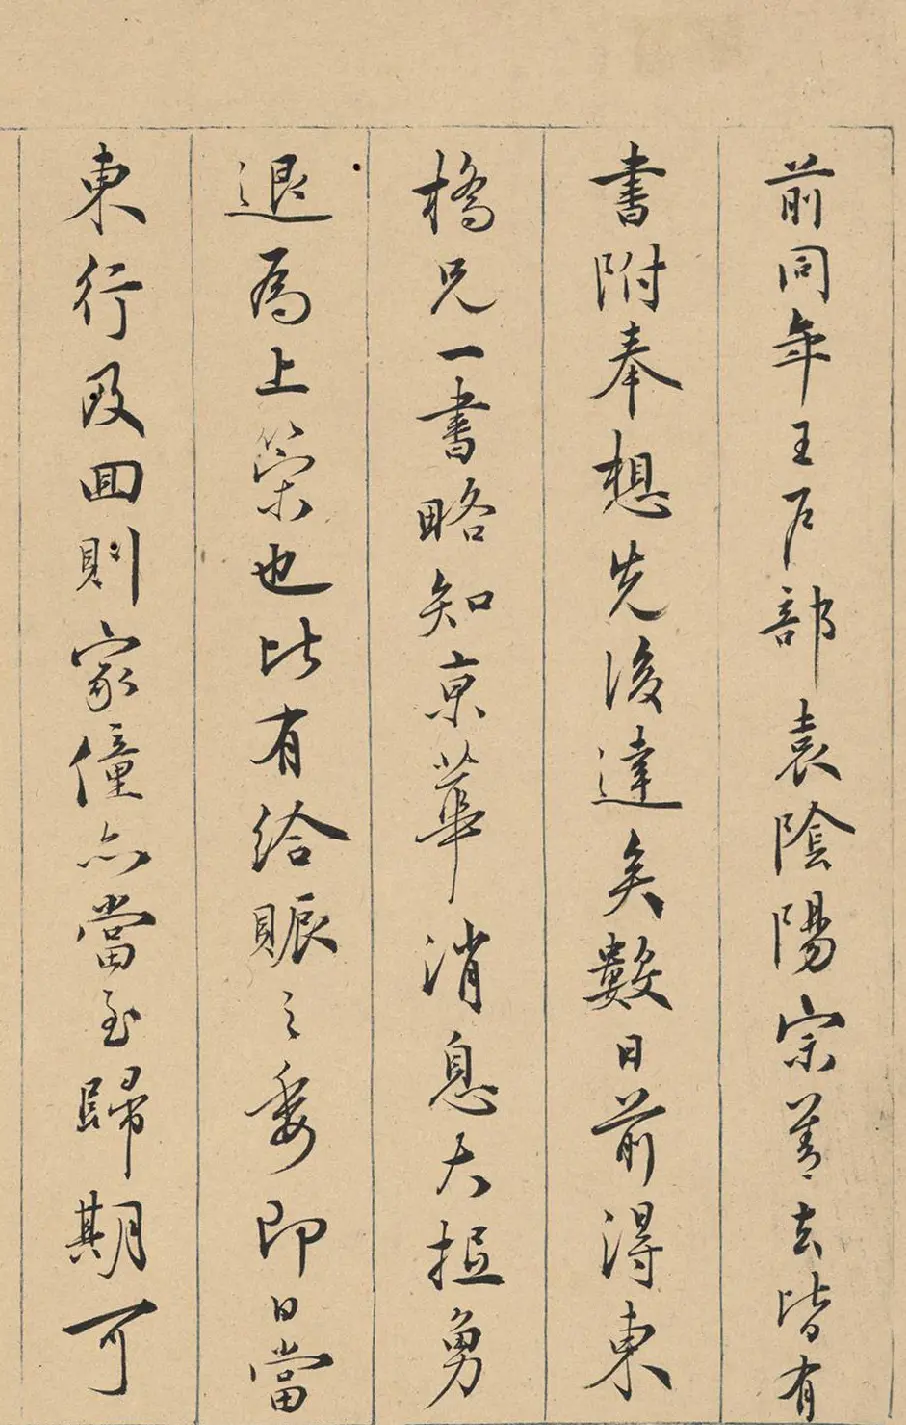 前同年王户部袁陰陽宗善去皆有
書附奉想先後達矣數日前得東
橋兄一書略知京華消息大抵勇
退為上策也比有給賑之委即日當
東行及回則家僮亦當至歸期可